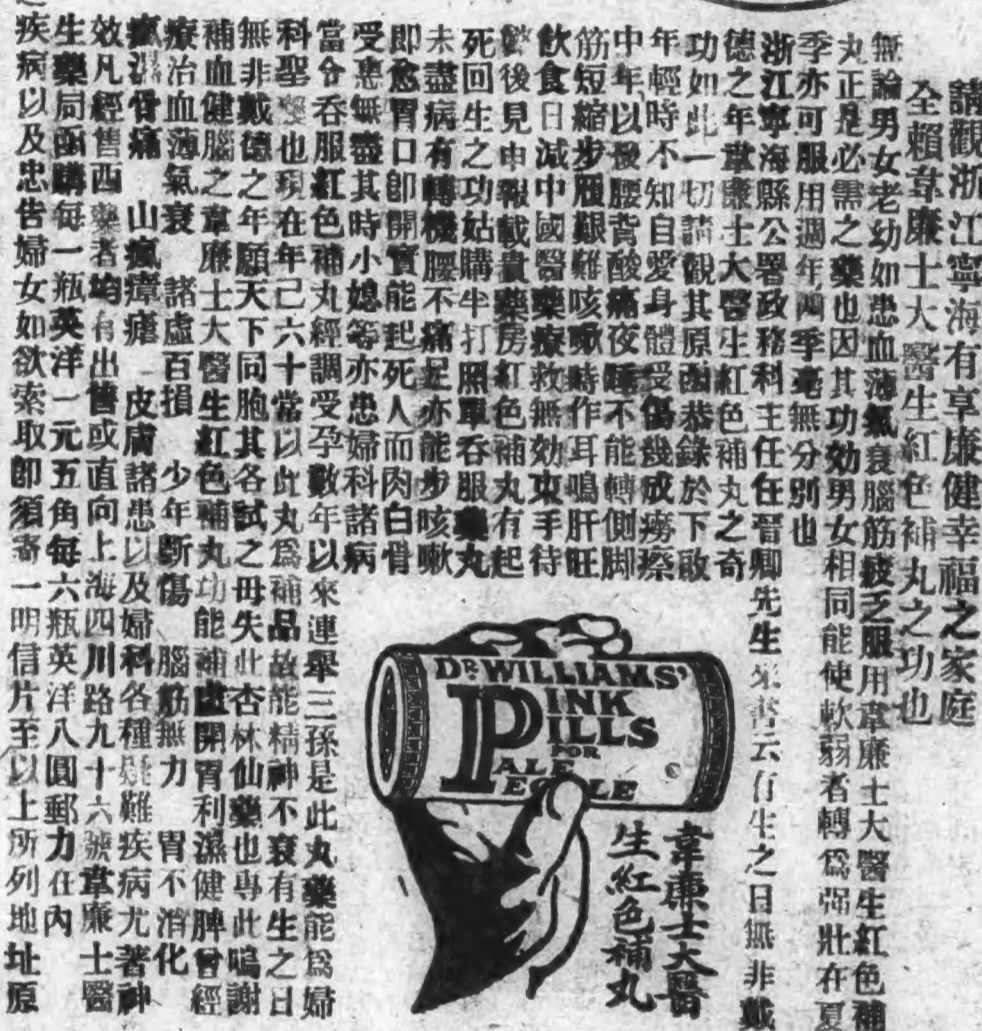 請觀浙江寧海有享康健幸福之家庭
全賴韋廉士大醫生紅色補丸之功也
無論男女老幼如患血薄氣衰腦筋疲乏服用韋廉士大醫生紅色補
丸正是必需之藥也因其功効男女相同能使軟弱者轉爲强壯在夏
季亦可服用週年四季毫無分別也
浙江寧海縣公署政務科主任任晉卿先生來書云有生之日無非戴
德之年韋廉士大醫生紅色補丸之奇
功如此一切請觀其原函恭錄於下敢
年輕時不知自愛身體受傷幾成癆瘵
中年以後腰背酸痛夜睡不能轉側脚
筋短縮步履艱難咳嗽時作耳鳴肝旺
飲食日減中國醫藥療救無効束手待
斃後見申報載貴藥房紅色補丸有起
死回生之功姑購半打照單吞服藥丸
未盡病有轉機腰不痛足亦能步咳嗽
即愈胃口即開實能起死人而肉白骨
受惠無盡其時小媳等亦患婦科諸病
當分吞服紅色補丸經調受孕數年以來連舉三孫是此丸藥能爲婦
科聖藥也現在年已六十常以此丸爲補品故能精神不衰有生之日
無非戴德之年願天下同胞其各試之毋失此杏林仙藥也專此鳴謝
補血健腦之韋廉士大醫生紅色補丸功能補虛開胃利濕健脾曾經
療治血薄氣衰 諸虛百損 少年斷傷 腦筋無力 胃不消化
骨痛 山嵐瘴瘧 皮膚諸患以及婦科各種疑難疾病尤著神
效凡經售西藥者均有出售或直向上海四川路九十六號韋廉士醫
生藥局函購每一瓶英洋一元五角每六瓶英洋八圓郵力在內
疾病以及忠告婦女如欲索取即須寄一明信片至以上所列地址原
DR. WILLIAMS'
PINK
PILLS
FOR
PALE
PEOPLE
韋廉士大醫
生紅色補丸